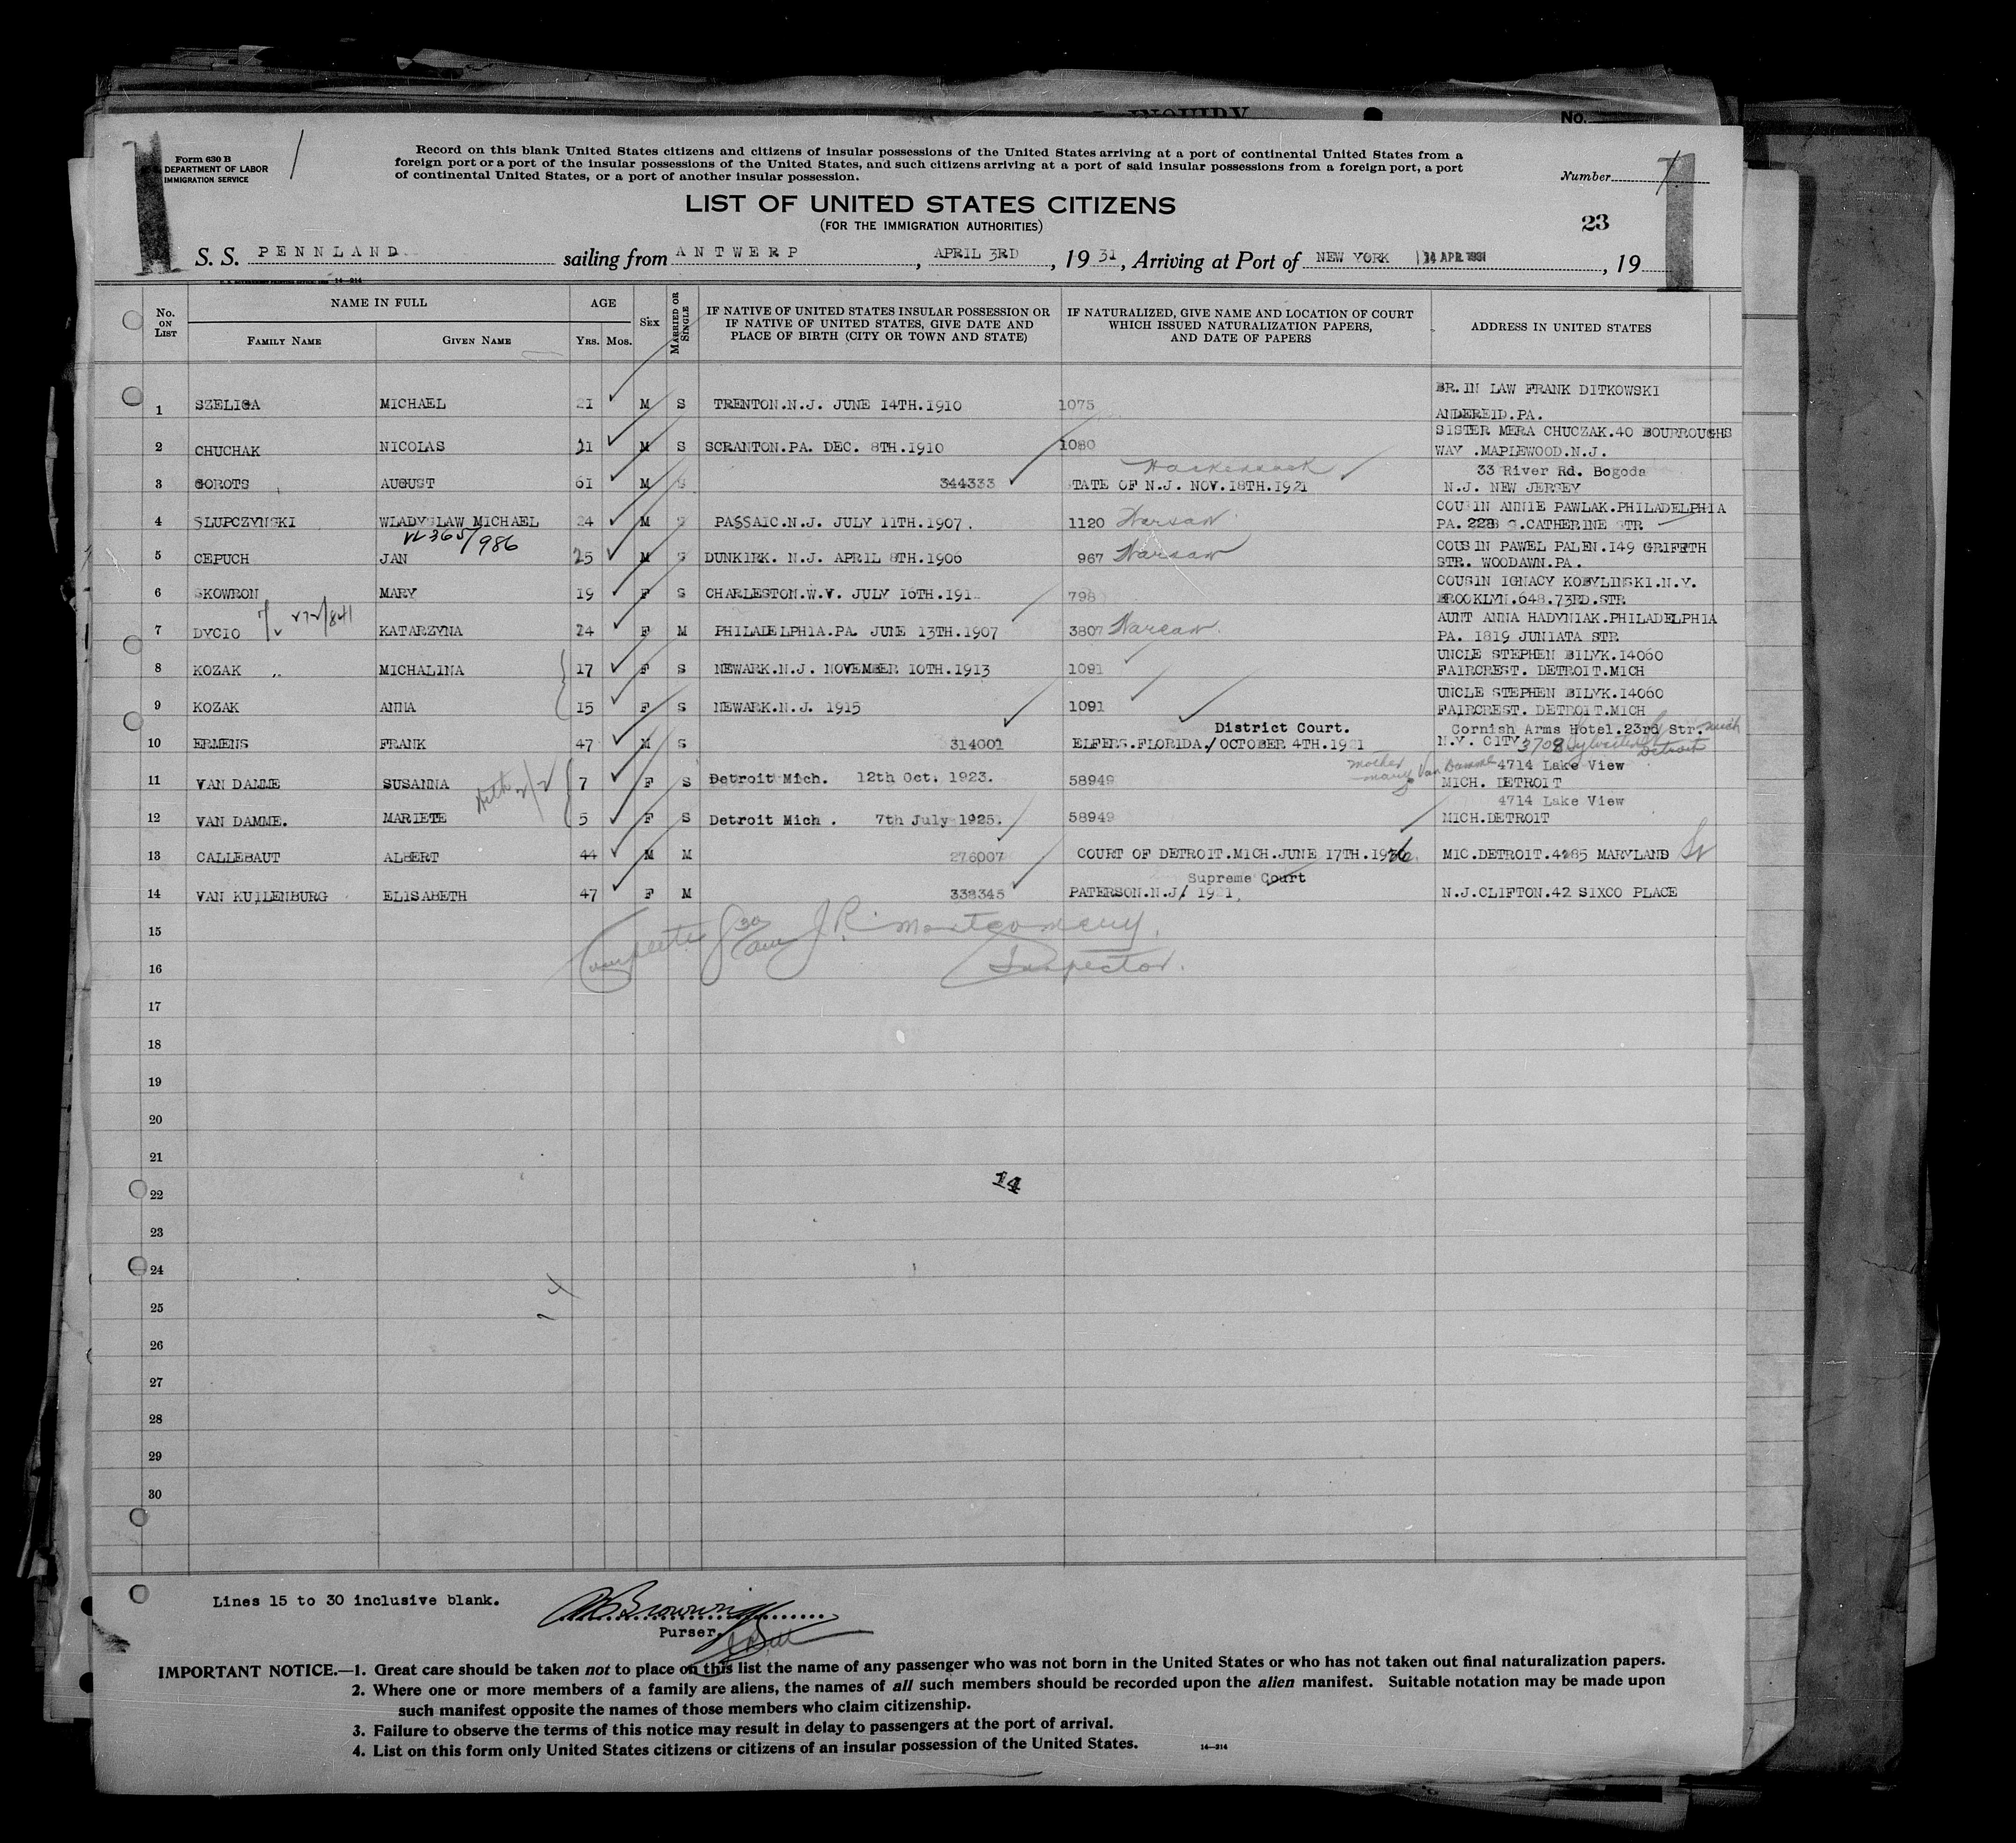 INQUIRY
No.
Form 630 B
DEPARTMENT OF LABOR
IMMIGRATION SERVICE
Record on this blank United States citizens and citizens of insular possessions of the United States arriving at a port of continental United States from a
foreign port or a port of the insular possessions of the United States, and such citizens arriving at a port of said insular possessions from a foreign port, a port
of continental United States, or a port of another insular possession.
Number
LIST OF UNITED STATES CITIZENS
(FOR THE IMMIGRATION AUTHORITIES)
23
S. S. PENNLAND sailing from ANTWERP, APRIL 3RD, 1931, Arriving at Port of NEW YORK 14 APR 1931, 19
No. ON LIST NAME IN FULL FAMILY NAME GIVEN NAME AGE YRS. MOS. SEX MARRIED OR SINGLE IF NATIVE OF UNITED STATES INSULAR POSSESSION OR IF NATIVE OF UNITED STATES, GIVE DATE AND PLACE OF BIRTH (CITY OR TOWN AND STATE) IF NATURALIZED, GIVE NAME AND LOCATION OF COURT WHICH ISSUED NATURALIZATION PAPERS, AND DATE OF PAPERS ADDRESS IN UNITED STATES
1 SZELIGA MICHAEL 21 M S TRENTON.N.J. JUNE 14TH.1910 1075 BR.IN LAW FRANK DITKOWSKI
ANDEREID.PA.
2 CHUCHAK NICOLAS 21 M S SCRANTON.PA. DEC. 8TH.1910 1080 SISTER MERA CHUCZAK.40 BOURROUGHS
WAY .MAPLEWOOD.N.J.
Hackensack
3 GOROTS AUGUST 61 M S 344333 STATE OF N.J. NOV.18TH.1921 33 River Rd. Bogoda
N.J. NEW JERSEY
4 SLUPCZYNSKI WLADYSLAW MICHAEL 24 M S PASSAIC.N.J. JULY 11TH.1907. 1120 Warsaw COUSIN ANNIE PAWLAK.PHILADELPHIA
PA. 228 S.CATHERINE STR
5 CEPUCH JAN 25 M S DUNKIRK. N.J. APRIL 8TH.1906 967 Warsaw COUSIN PAWEL PALEN.149 GRIFETH
STR. WOODAWN.PA.
6 SKOWRON MARY 19 F S CHARLESTON.W.V. JULY 16TH.191 798 COUSIN IGNACY KOBYLINSKI.N.Y.
BROOKLYN.648.73RD.STR
7 DYCIO KATARZYNA 24 F M PHILADELPHIA.PA. JUNE 13TH.1907 3807 Warsaw AUNT ANNA HADYNIAK.PHILADELPHIA
PA. 1819 JUNIATA STR
8 KOZAK MICHALINA 17 F S NEWARK.N.J. NOVEMBER 10TH.1913 1091 UNCLE STEPHEN BILYK.14060
FAIRCREST. DETROIT.MICH
9 KOZAK ANNA 15 F S NEWARK.N.J. 1915 1091 UNCLE STEPHEN BILYK.14060
FAIRCREST. DETROIT.MICH
District Court. Cornish Arms Hotel.23rd Str.
10 ERMENS FRANK 47 M S 314001 ELFERS.FLORIDA./OCTOBER 4TH.1921 N.Y. CITY 3708 Sylvester Detroit Mich
mother mary Van Damme 4714 Lake View
11 VAN DAMME SUSANNA 7 F S Detroit Mich. 12th Oct. 1923. 58949 MICH. DETROIT
4714 Lake View
12 VAN DAMME. MARIETE 5 F S Detroit Mich . 7th July 1925. 58949 MICH.DETROIT
13 CALLEBAUT ALBERT 44 M M 276007 COURT OF DETROIT.MICH.JUNE 17TH.1926. MIC.DETROIT.4285 MARYLAND
Supreme Court
14 VAN KUILENBURG ELISABETH 47 F M 338345 PATERSON.N.J/ 1921. N.J.CLIFTON.42 SIXCO PLACE
15
J.R. Montgomery.
16
Inspector.
17
18
19
20
21
22
14
23
24
25
26
27
28
29
30
Lines 15 to 30 inclusive blank.
Browning
Purser.
IMPORTANT NOTICE.—1. Great care should be taken not to place on this list the name of any passenger who was not born in the United States or who has not taken out final naturalization papers.
2. Where one or more members of a family are aliens, the names of all such members should be recorded upon the alien manifest. Suitable notation may be made upon
such manifest opposite the names of those members who claim citizenship.
3. Failure to observe the terms of this notice may result in delay to passengers at the port of arrival.
4. List on this form only United States citizens or citizens of an insular possession of the United States. 14—314